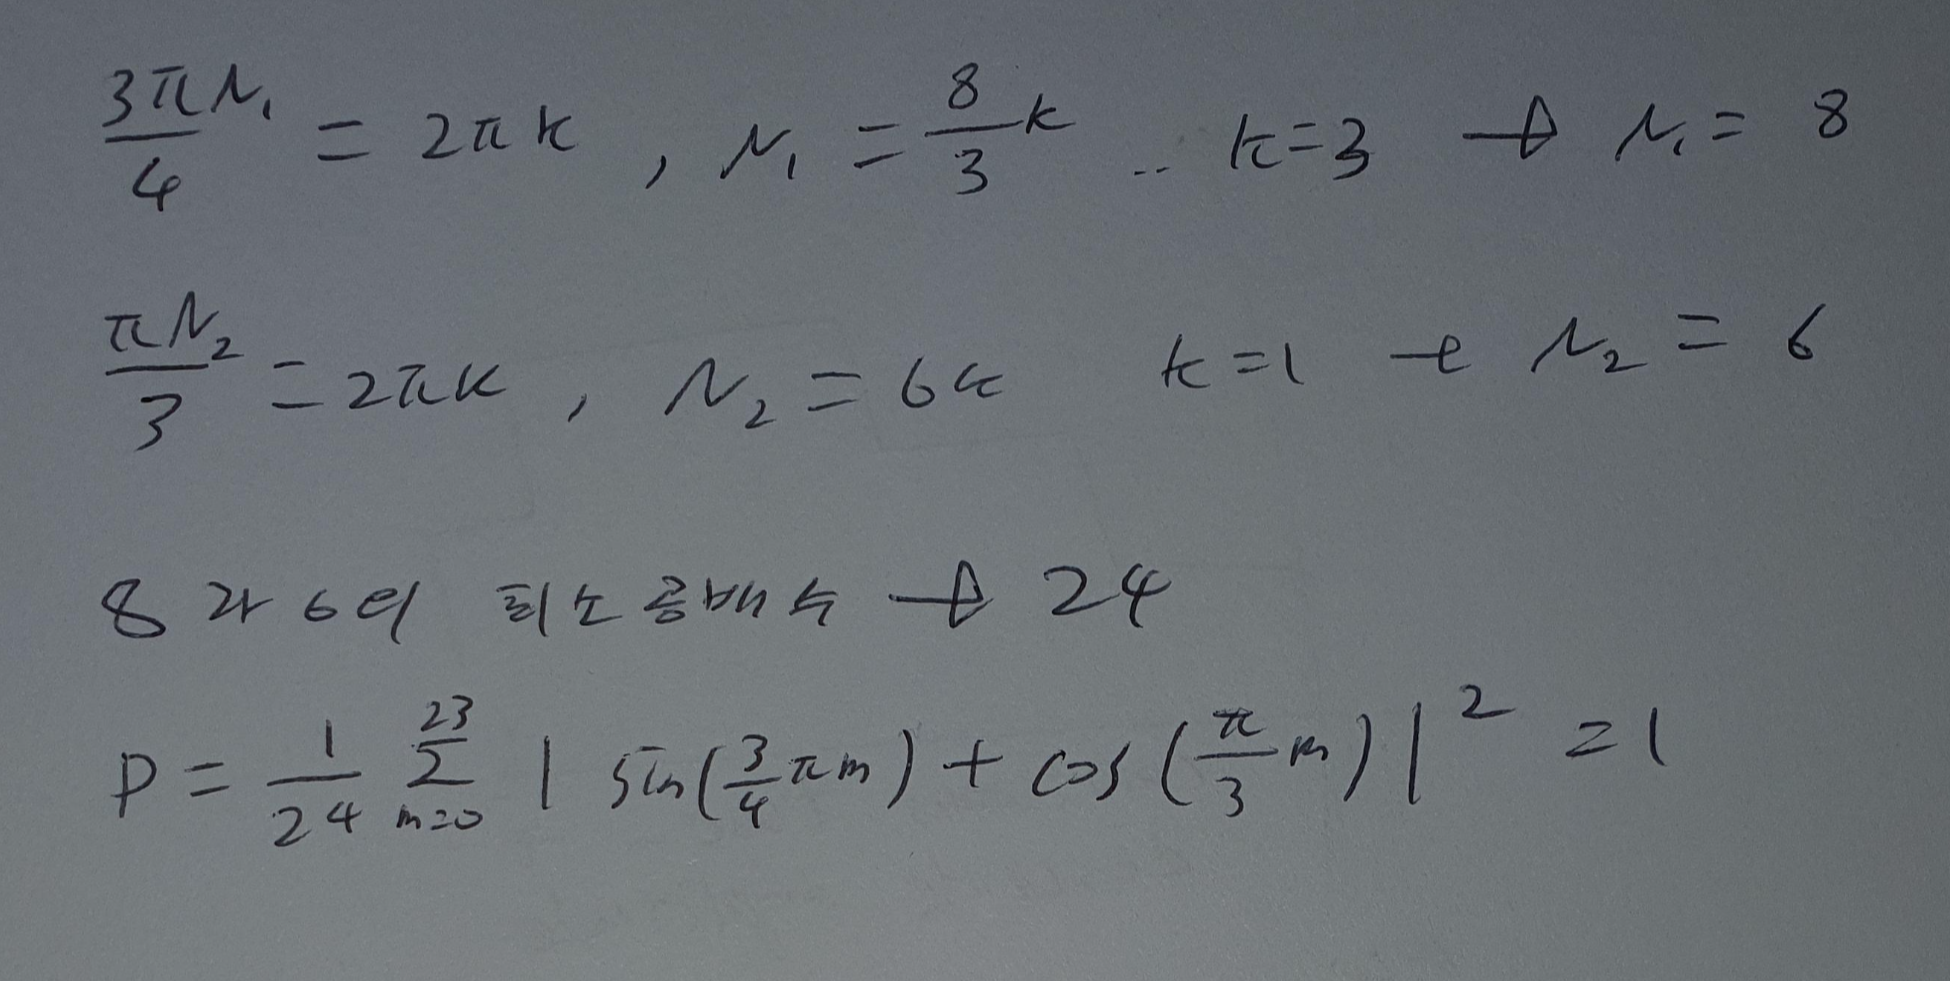 3πN₁/4 = 2πk , N₁ = 8/3 k .. k=3 → N₁ = 8
πN₂/3 = 2πk , N₂ = 6k k=1 → N₂ = 6
8과 6의 최소공배수 → 24
P = 1/24 Σ_{m=0}^{23} | sin(3/4 πm) + cos(π/3 m) |² = 1